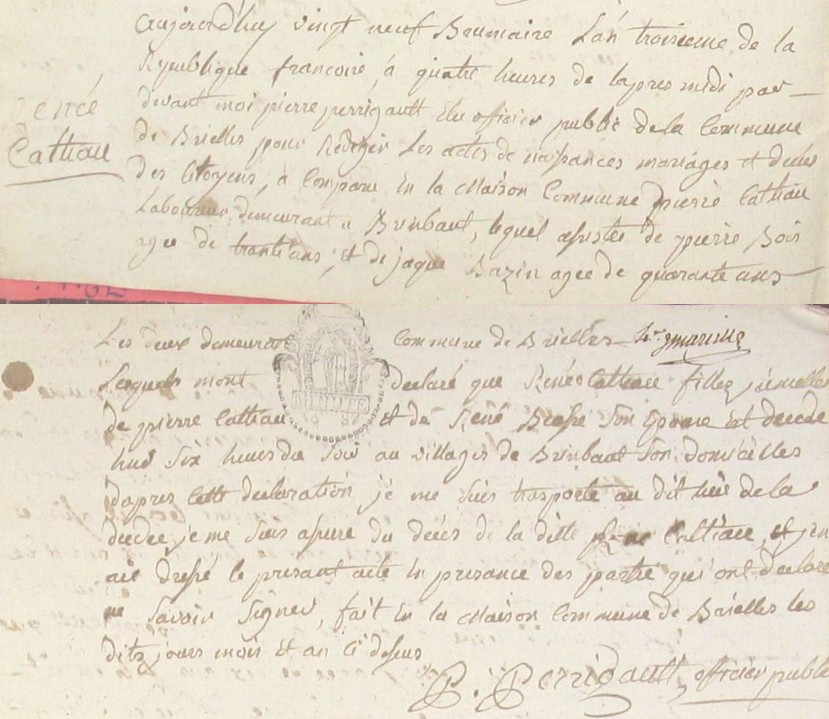 aujourd'huy vingt neuf Brumaire L'an troisieme de la
Republique francoise, a quatre heures de lapres midi par
René
Catheau
devant moi pierre perrigault Elu officier public de la Commune
de Brielles pour Rediger Les actes de naissances mariages et deces
des Citoyens, a Comparu En la Maison Commune pierre Catheau
Laboureur demeurant a Brinbaut, lequel assistés de pierre Bois
agee de trante ans, et de jaque Bazin agee de quarante ans
Les deux demeurant Commune de Brielles
Lesquels mont declaré que Renée Catheau fille
de pierre Catheau et de René Son Epouse Est decede
hier Six heures du Soir au villages de Brinbaut Son domicilles
dapres Cette declaration je me suis trasporte au dit lieu de la
decée, je me Suis assuré du decés de la ditte Catheau, et j'en
ait Dressé le presant acte En presance des partie qui ont declaré
ne Savoir Signer, fait En la Maison Commune de Brielles les
dits jours mois Et an Ci dessus
P. Perrigault officier public